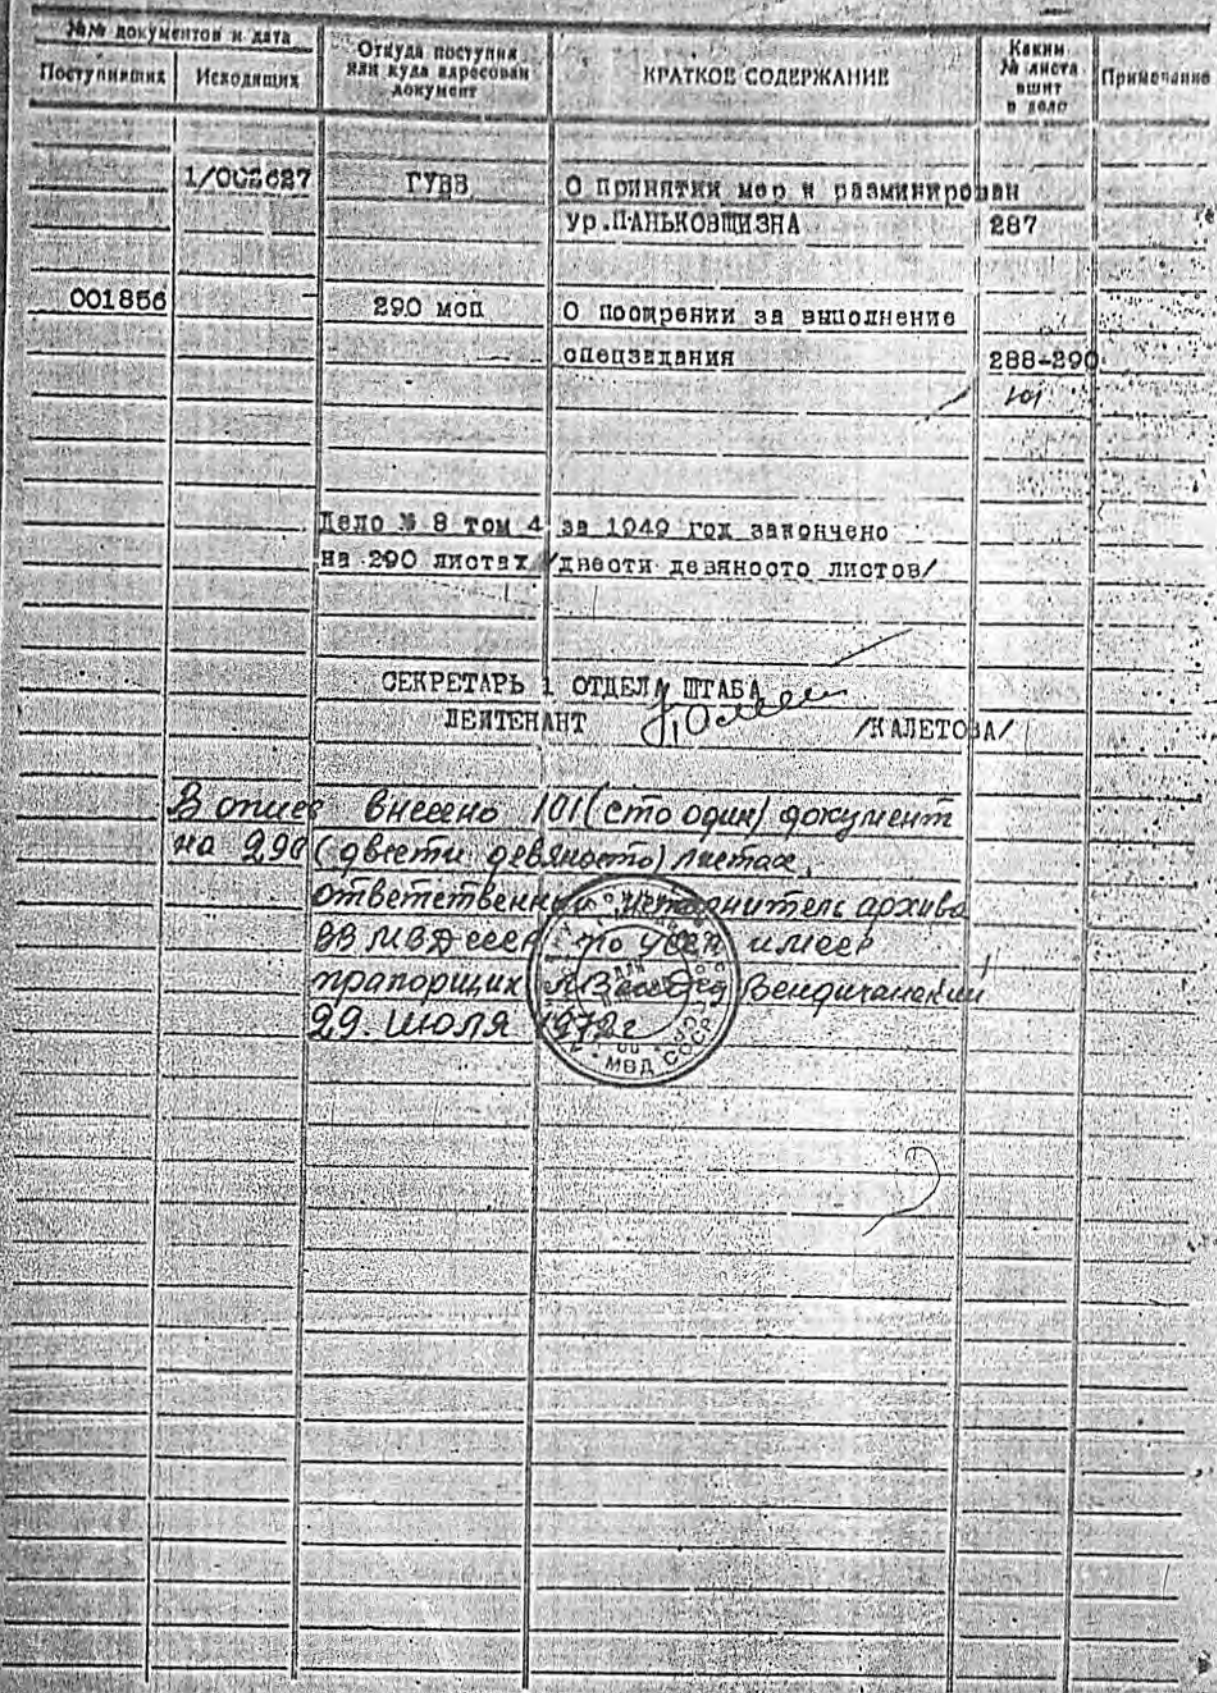 №№ документов и дата
Поступивших
Исходящих
Откуда поступил
или куда адресован
документ
КРАТКОЕ СОДЕРЖАНИЕ
Каким
№ листа
вшит
в дело
Примечание
1/002627 ГУВВ О принятии мер и разминирован
ур.ПАНЬКОВЩИЗНА 287
001856 290 мсп О поощрении за выполнение
спецзадания 288-290
101
Дело № 8 том 4 за 1949 год закончено
на 290 листах /двести девяносто листов/
СЕКРЕТАРЬ 1 ОТДЕЛА ШТАБА
ЛЕЙТЕНАНТ /КАЛЕТОВА/
В описе внесено 101 (сто один) документ
на 290 (двести девяносто) листах.
ответственный исполнитель архива
ВВ МВД СССР по
прапорщик
29. июля 1972г
МВД СССР